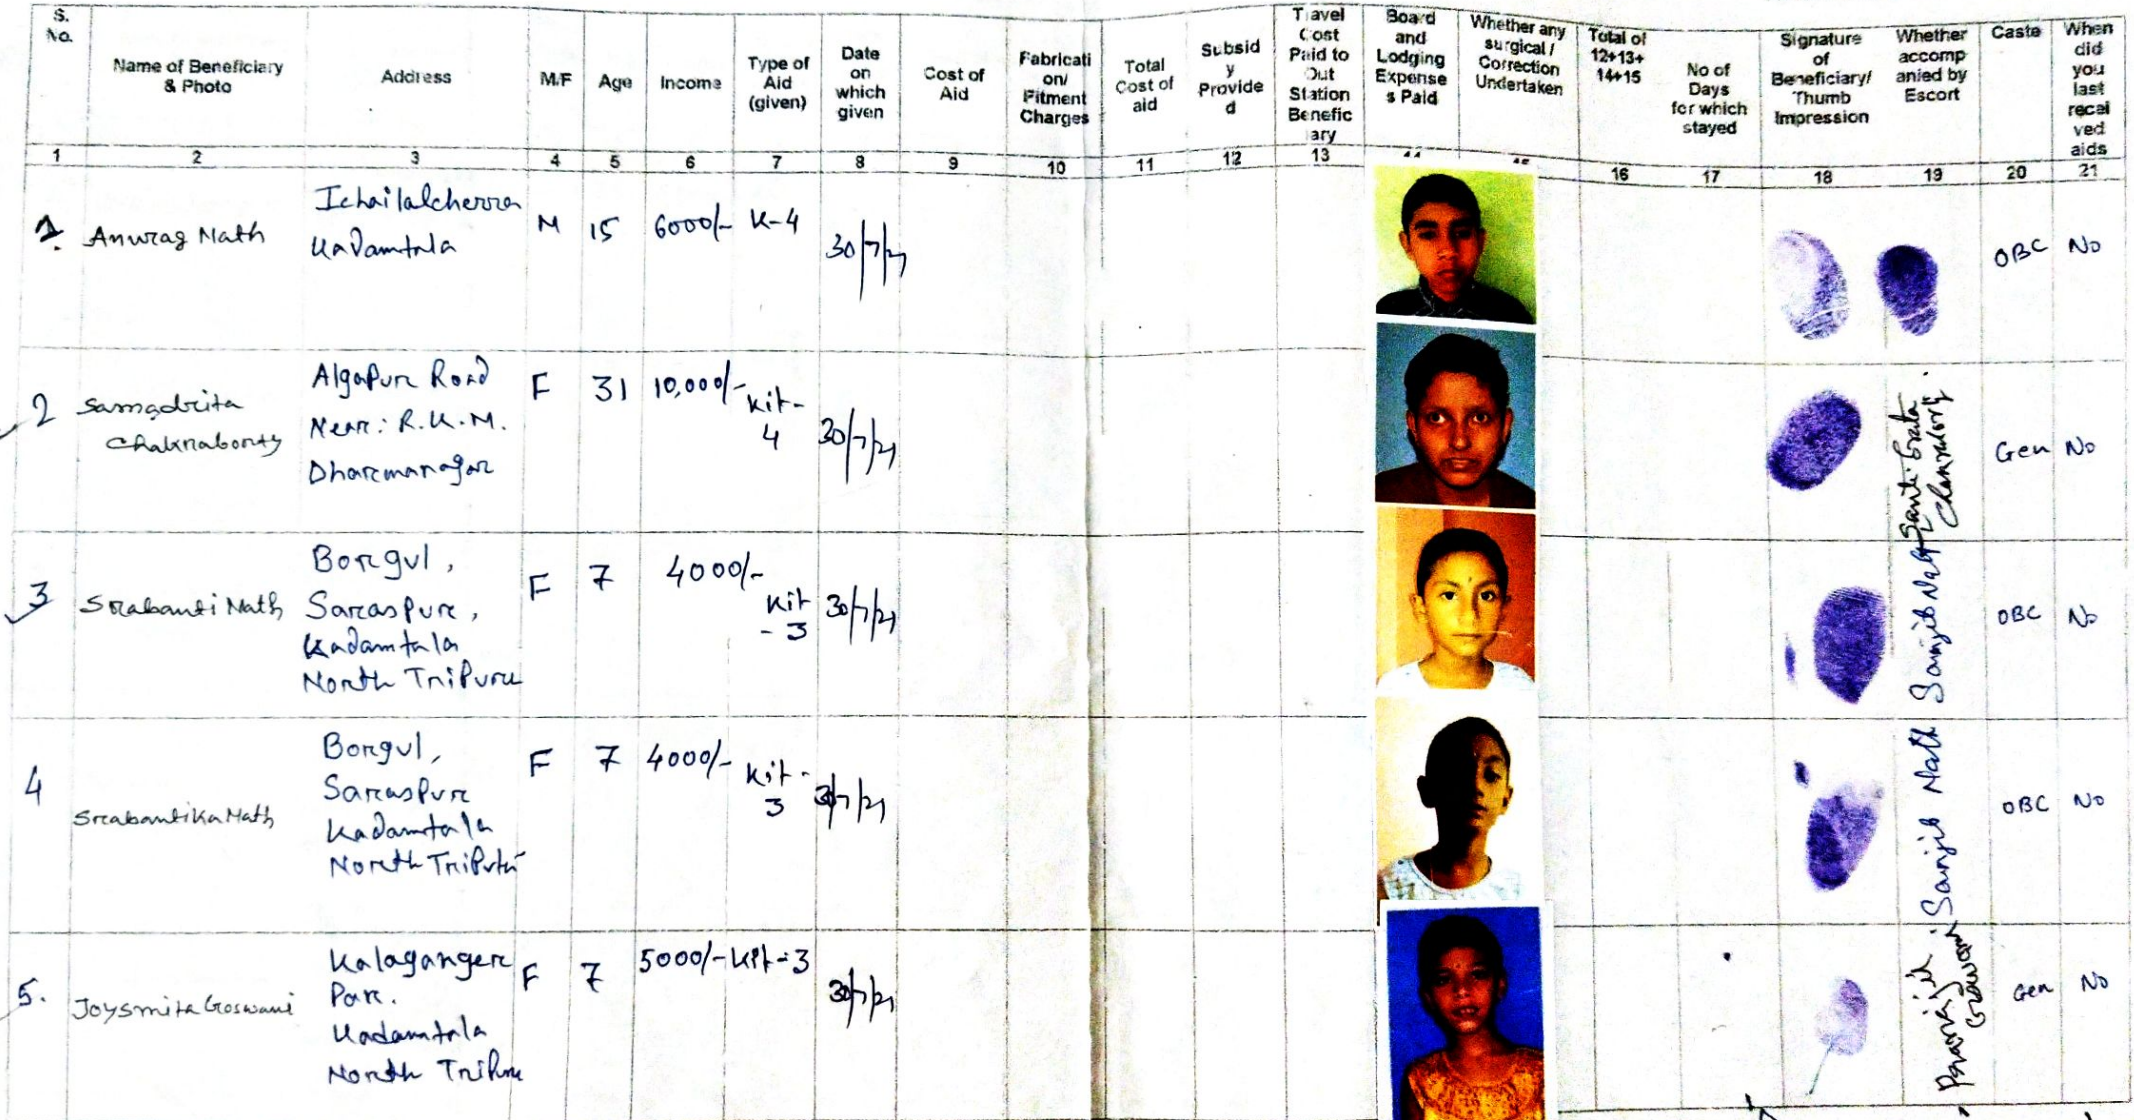 S. No.
Name of Beneficiary & Photo
Address
M/F
Age
Income
Type of Aid (given)
Date on which given
Cost of Aid
Fabricati on/ Fitment Charges
Total Cost of aid
Subsid y Provide d
Travel Cost Paid to Out Station Benefic iary
Board and Lodging Expense s Paid
Whether any surgical / Correction Undertaken
Total of 12+13+ 14+15
No of Days for which stayed
Signature of Beneficiary/ Thumb Impression
Whether accomp anied by Escort
Caste
When did you last recei ved aids
1 2 3 4 5 6 7 8 9 10 11 12 13 14 15 16 17 18 19 20 21
1. Anurag Nath
Ichailalcherra
Kadamtala
M 15 6000/- K-4 30/7/21 OBC No
2 Samadrita
Chakraborty
Algapur Road
Near: R.K.M.
Dharmanagar
F 31 10,000/- Kit-4 30/7/21 Gen No
3 Srabanti Nath
Borgul,
Saraspur,
Kadamtala
North Tripura
F 7 4000/- Kit-3 30/7/21 Sanjib Nath OBC No
4 Srabantika Nath
Borgul,
Saraspur
Kadamtala
North Tripura
F 7 4000/- Kit-3 30/7/21 Sanjib Nath OBC No
5. Joysmita Goswami
Kalaganger
Par.
Kadamtala
North Tripura
F 7 5000/- Kit-3 30/7/21 Gen No